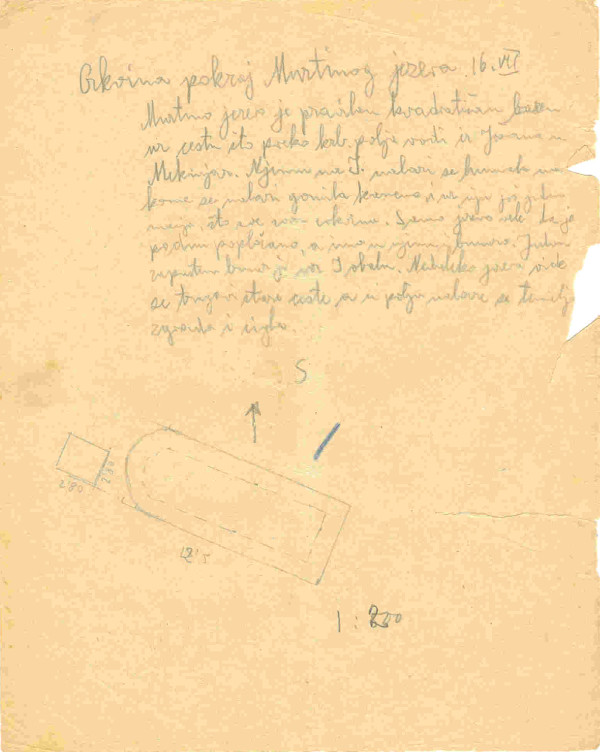 Crkvina pokraj Murtinog jezera 16. VII
Murtino jezero je pravilan kvadratičan bazen
uz cestu što preko krb. polja vodi iz Jošana u
Mekinjar. Njemu na I. nalazi se humak na
kome se nalazi gomila kamena i
što sve crkvinu. Samo jezero
podnu popločano, a ima u njemu bunara. Jedan
zapušten bunar je uz I obalu. Nedaleko jezera vide
se tragovi stare ceste, a u polju nalaze se temelji
zgrada i cigla.
S
280
280
12'5
1 : 200